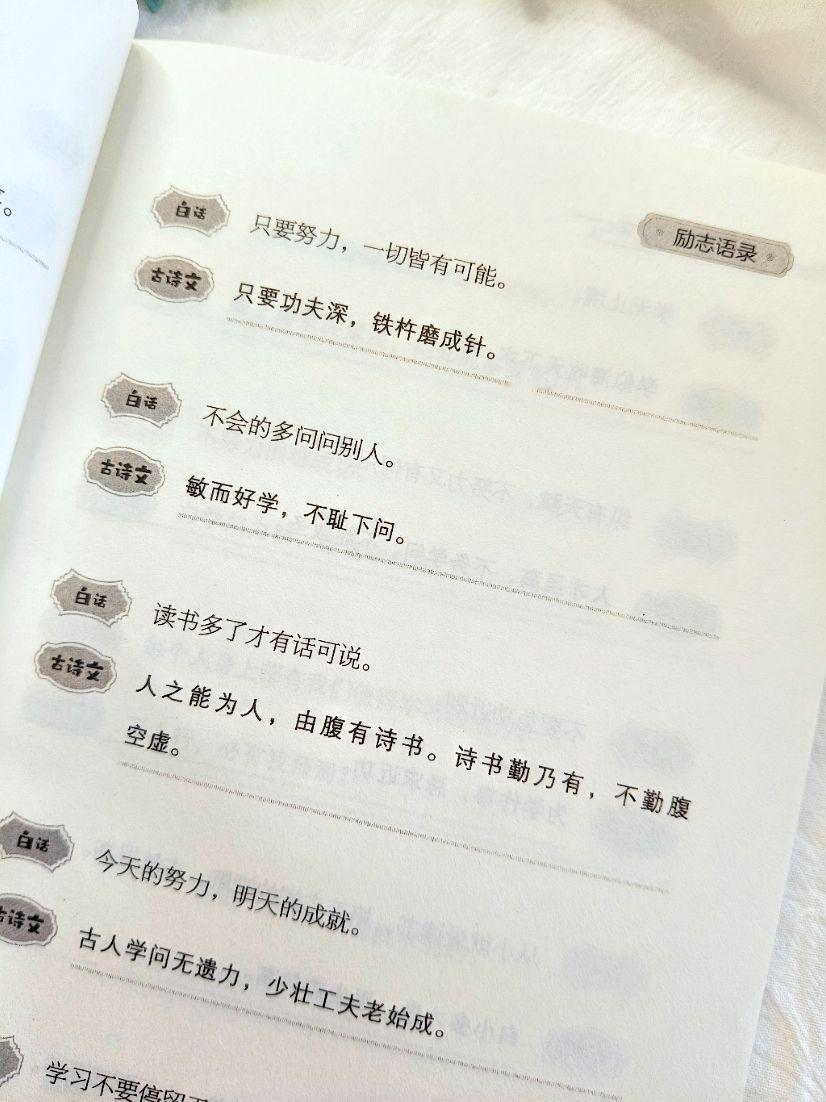 励志语录
白话
只要努力，一切皆有可能。
古诗文
只要功夫深，铁杵磨成针。
白话
不会的多问问别人。
古诗文
敏而好学，不耻下问。
白话
读书多了才有话可说。
古诗文
人之能为人，由腹有诗书。诗书勤乃有，不勤腹
空虚。
白话
今天的努力，明天的成就。
古诗文
古人学问无遗力，少壮工夫老始成。
学习不要停留